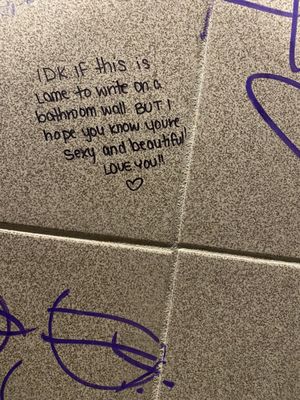 IDK IF this is
Lame to write on a
bathroom wall BUT I
hope you know youre
sexy and beautiful!
LOVE YOU!!